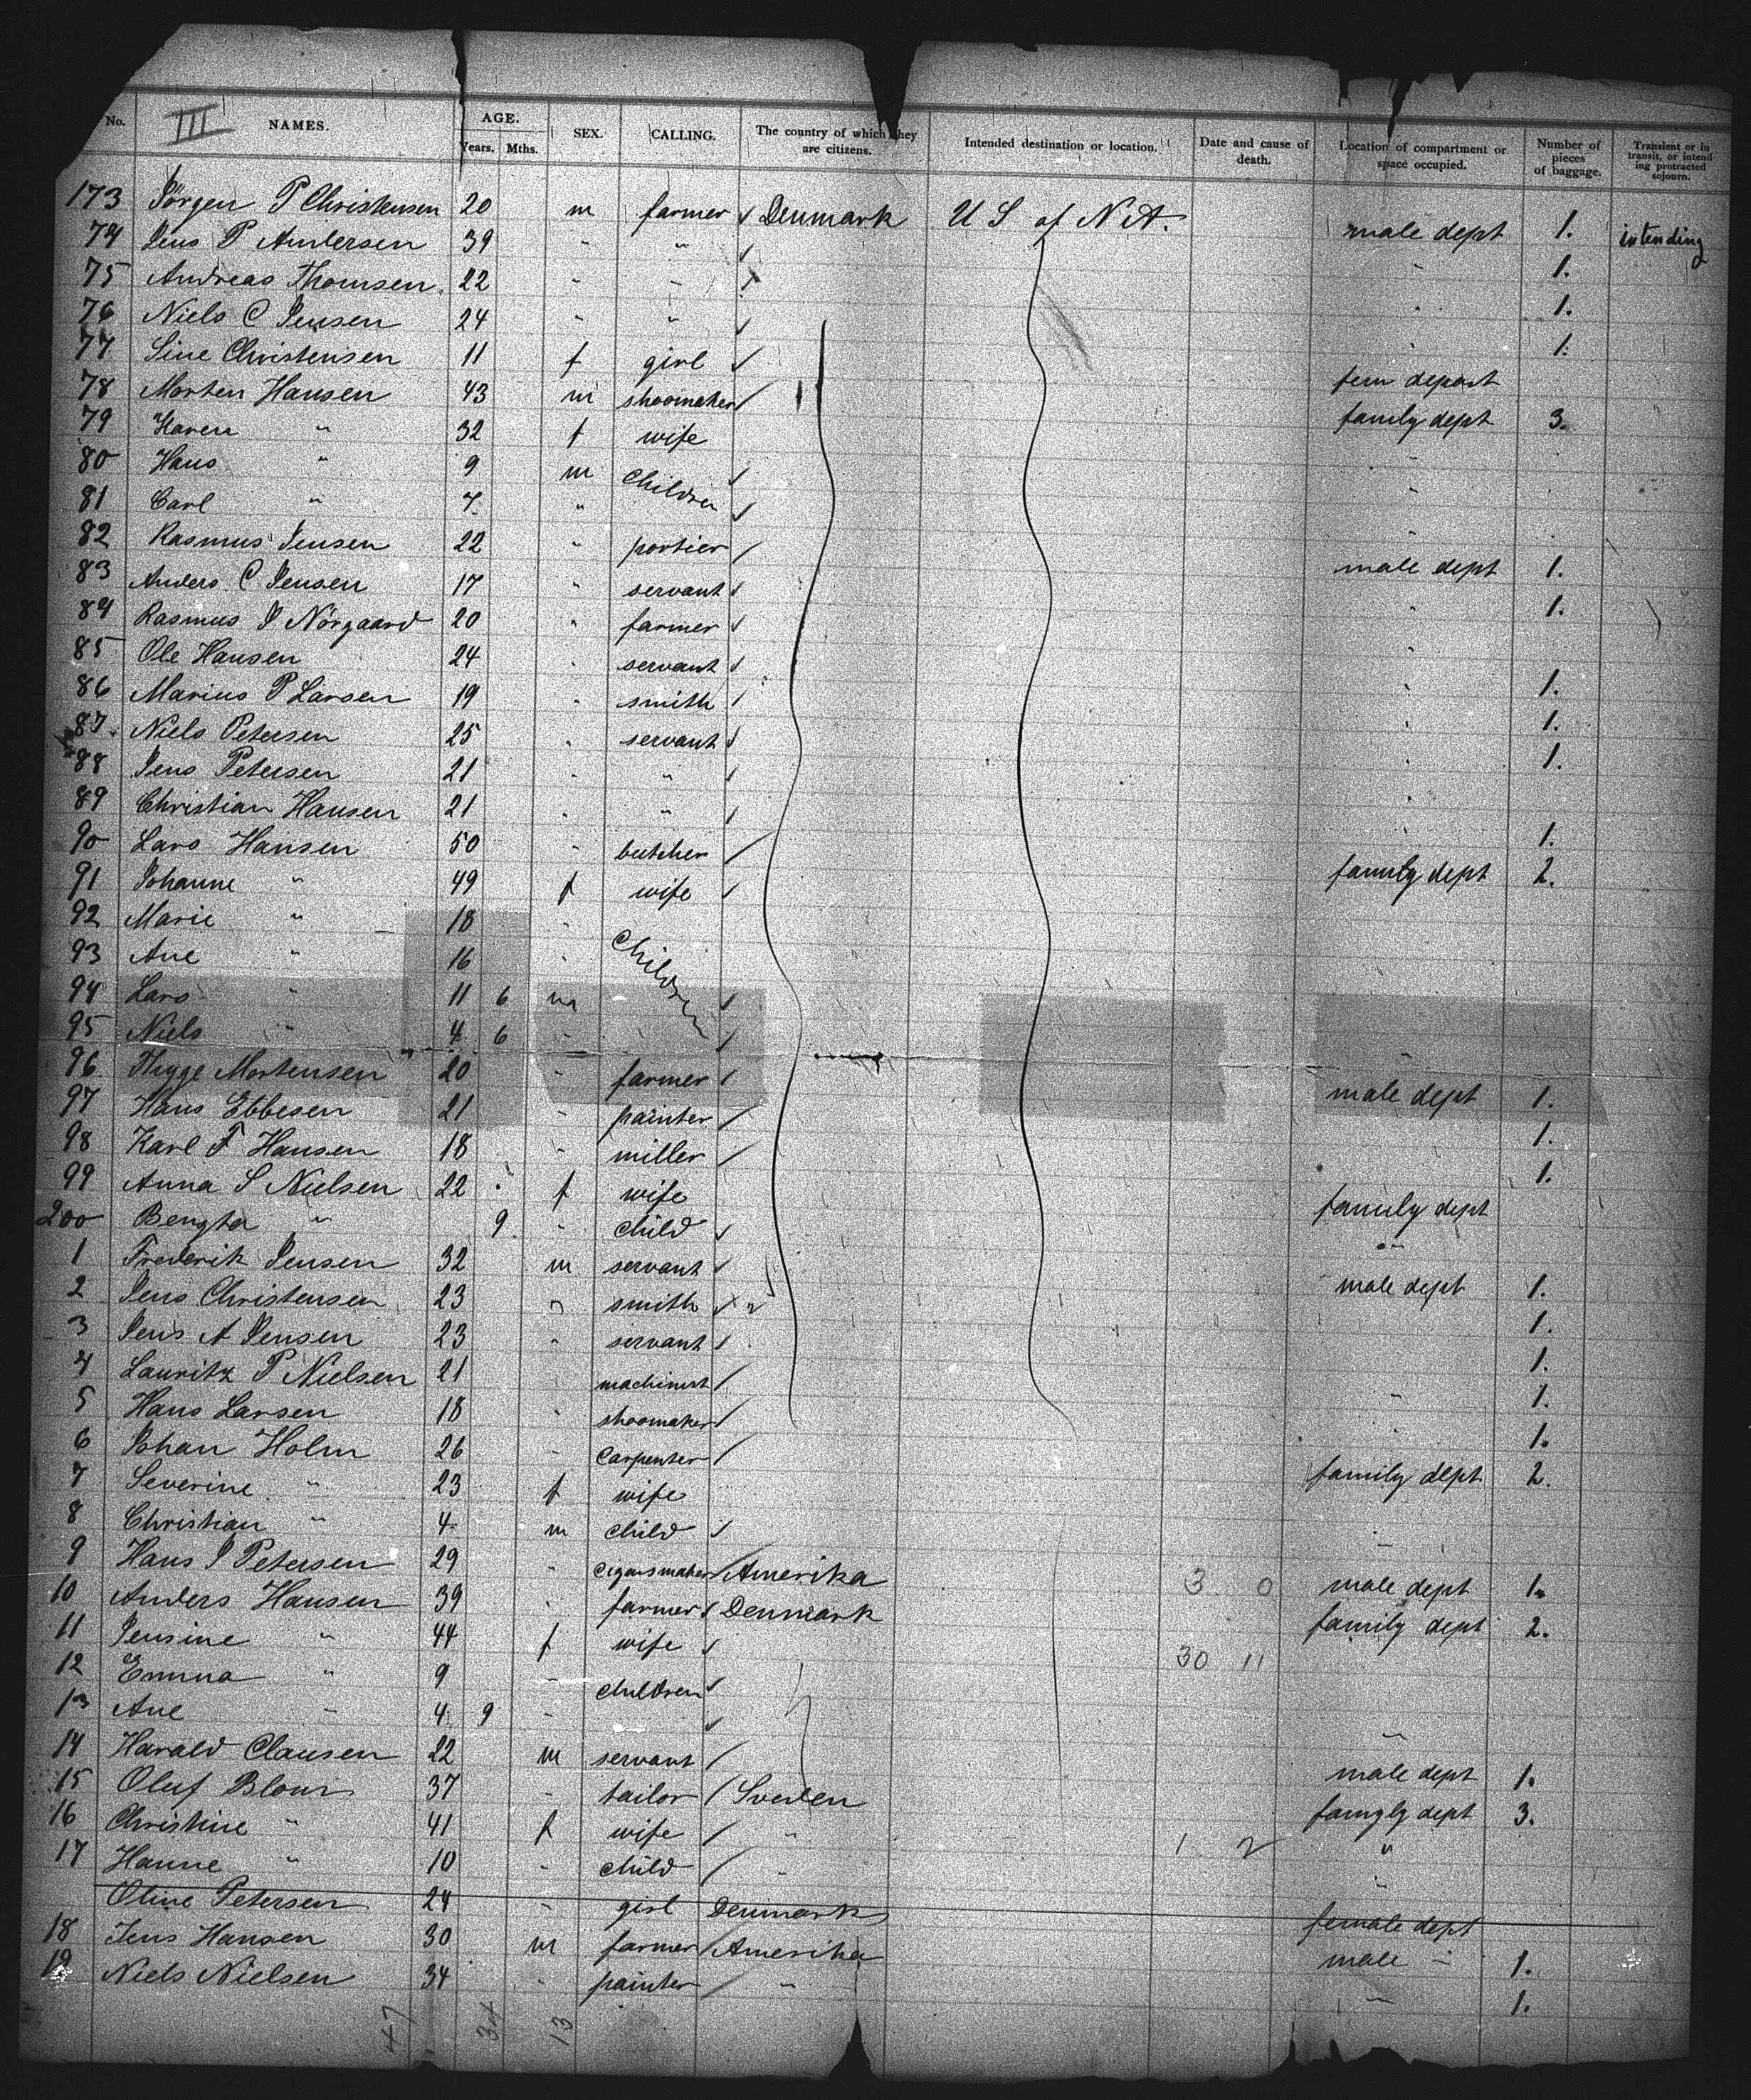 III
No. NAMES. AGE. Years. Mths. SEX. CALLING. The country of which they are citizens. Intended destination or location. Date and cause of death. Location of compartment or space occupied. Number of pieces of baggage. Transient or in transit, or intending protracted sojourn.
173 Jörgen P Christensen 20 m farmer Denmark U S of N A. male dept 1. intending
74 Jens P Andersen 39 " " " 1.
75 Andreas Thomsen 22 " " " 1.
76 Niels C Jensen 24 " " " 1.
77 Sine Christensen 11 f girl fem depart
78 Morten Hansen 43 m shoomaker family dept 3.
79 Karen " 32 f wife "
80 Hans " 9 m Children "
81 Carl " 7 " "
82 Rasmus Jensen 22 " portier male dept 1.
83 Anders C Jensen 17 " servant " 1.
84 Rasmus J Nörgaard 20 " farmer "
85 Ole Hansen 24 " servant " 1.
86 Marius P Larsen 19 " smith " 1.
87 Niels Petersen 25 " servant " 1.
88 Jens Petersen 21 " " "
89 Christian Hansen 21 " " " 1.
90 Lars Hansen 50 " butcher family dept 2.
91 Johanne " 49 f wife
92 Marie " 18 "
93 Ane " 16 " Children
94 Lars " 11 6 m
95 Niels " 4 6 " "
96 Thyge Mortensen 20 " farmer male dept 1.
97 Hans Ebbesen 21 " painter 1.
98 Karl F Hansen 18 " miller " 1.
99 Anna S Nielsen 22 f wife family dept
200 Bengta " 9 " child "
1 Frederik Jensen 32 m servant male dept 1.
2 Jens Christensen 23 " smith 1.
3 Jens A Jensen 23 " servant 1.
4 Lauritz P Nielsen 21 machinist " 1.
5 Hans Larsen 18 " shoomaker " 1.
6 Johan Holm 26 " Carpenter family dept 2.
7 Severine " 23 f wife
8 Christian " 4 m child "
9 Hans J Petersen 29 " cigarsmaker Amerika 3 0 male dept 1.
10 Anders Hansen 39 " farmer Denmark family dept 2.
11 Jensine " 44 f wife 30 11
12 Emma " 9 " children
13 Ane " 4 9 " "
14 Harald Clausen 22 m servant male dept 1.
15 Oluf Blom 37 " tailor Sveden famyly dept 3.
16 Christine " 41 f wife " 1 2 "
17 Hanne " 10 " child " "
Oline Petersen 24 " girl Denmark female dept
18 Jens Hansen 30 m farmer Amerika male " 1.
19 Niels Nielsen 34 " painter " " 1.
47 34 13